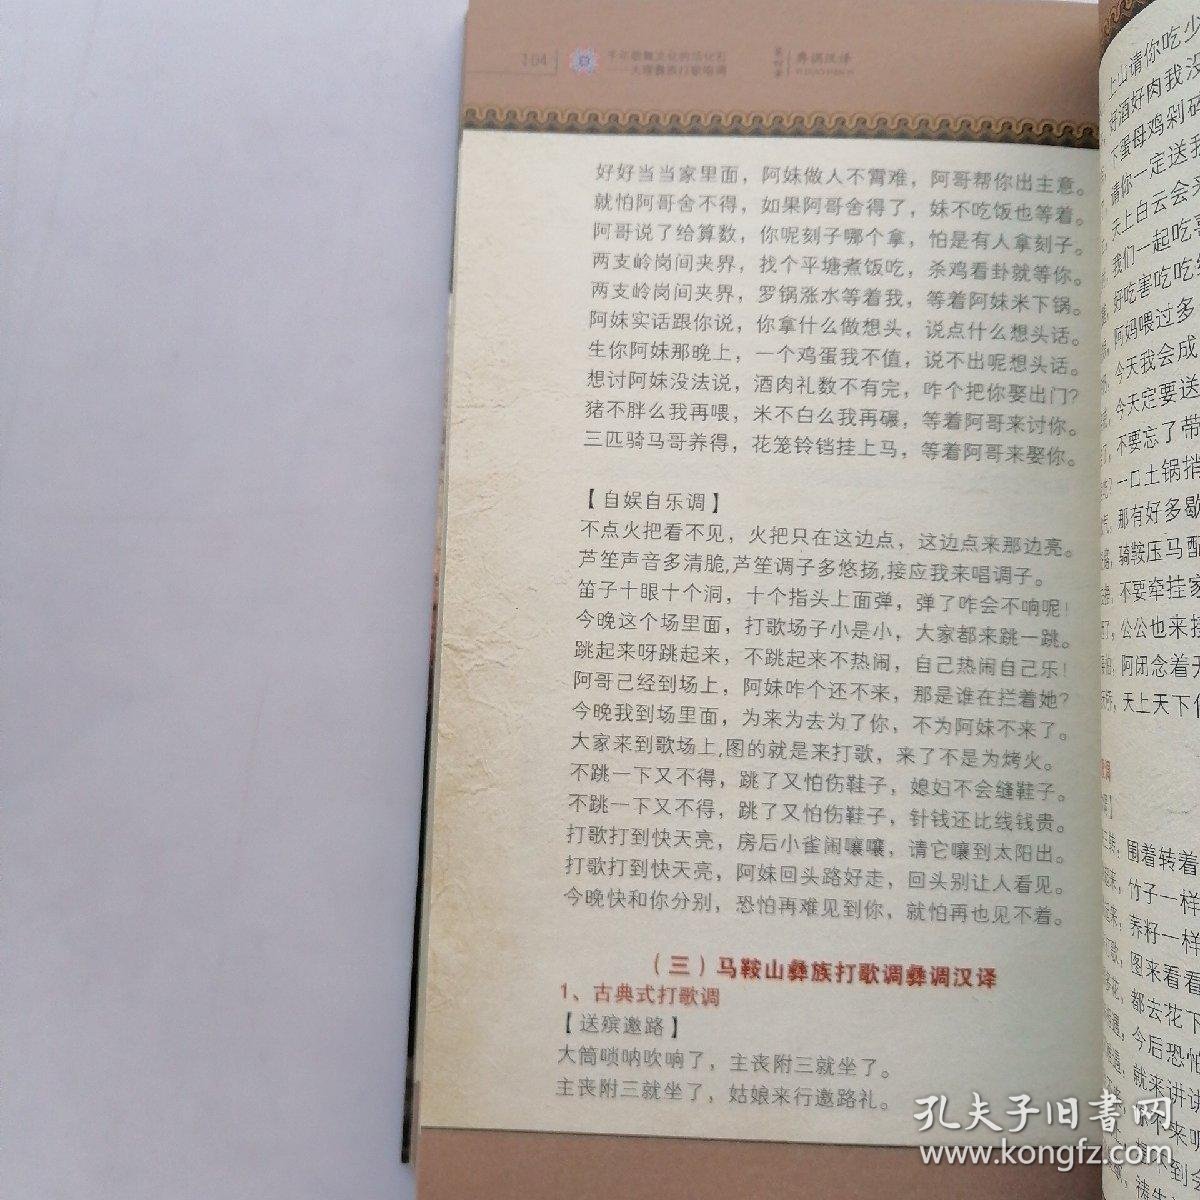 164
千年歌舞文化的活化石
彝调汉译
好好当当家里面，阿妹做人不霄难，阿哥帮你出主意。
就怕阿哥舍不得，如果阿哥舍得了，妹不吃饭也等着。
阿哥说了给算数，你呢刻子哪个拿，怕是有人拿刻子。
两支岭岗间夹界，找个平塘煮饭吃，杀鸡看卦就等你。
两支岭岗间夹界，罗锅涨水等着我，等着阿妹米下锅。
阿妹实话跟你说，你拿什么做想头，说点什么想头话。
生你阿妹那晚上，一个鸡蛋我不值，说不出呢想头话。
想讨阿妹没法说，酒肉礼数不有完，咋个把你娶出门？
猪不胖么我再喂，米不白么我再碾，等着阿哥来讨你。
三匹骑马哥养得，花笼铃铛挂上马，等着阿哥来娶你。
【自娱自乐调】
不点火把看不见，火把只在这边点，这边点来那边亮。
芦笙声音多清脆,芦笙调子多悠扬,接应我来唱调子。
笛子十眼十个洞，十个指头上面弹，弹了咋会不响呢！
今晚这个场里面，打歌场子小是小，大家都来跳一跳。
跳起来呀跳起来，不跳起来不热闹，自己热闹自己乐！
阿哥己经到场上，阿妹咋个还不来，那是谁在拦着她？
今晚我到场里面，为来为去为了你，不为阿妹不来了。
大家来到歌场上,图的就是来打歌，来了不是为烤火。
不跳一下又不得，跳了又怕伤鞋子，媳妇不会缝鞋子。
不跳一下又不得，跳了又怕伤鞋子，针钱还比线钱贵。
打歌打到快天亮，房后小雀闹嚷嚷，请它嚷到太阳出。
打歌打到快天亮，阿妹回头路好走，回头别让人看见。
今晚快和你分别，恐怕再难见到你，就怕再也见不着。
（三）马鞍山彝族打歌调彝调汉译
1、古典式打歌调
【送殡邀路】
大筒唢呐吹响了，主丧附三就坐了。
主丧附三就坐了，姑娘来行邀路礼。
上山请你吃少
好酒好肉我没
下蛋母鸡剁碎
请你一定送我
天上白云会
我们一起吃
好吃害吃吃
阿妈喂过多
今天我会成
今天定要送
不要忘了带
一口土锅捎
那有好多歇
骑鞍压马配
不要牵挂家
公公也来接
阿闭念着天
天上天下
围着转着
竹子一样
荞籽一样
图来看看
都去花下
今后恐怕
就来讲讲
孔夫子旧書网
www.kongfz.com